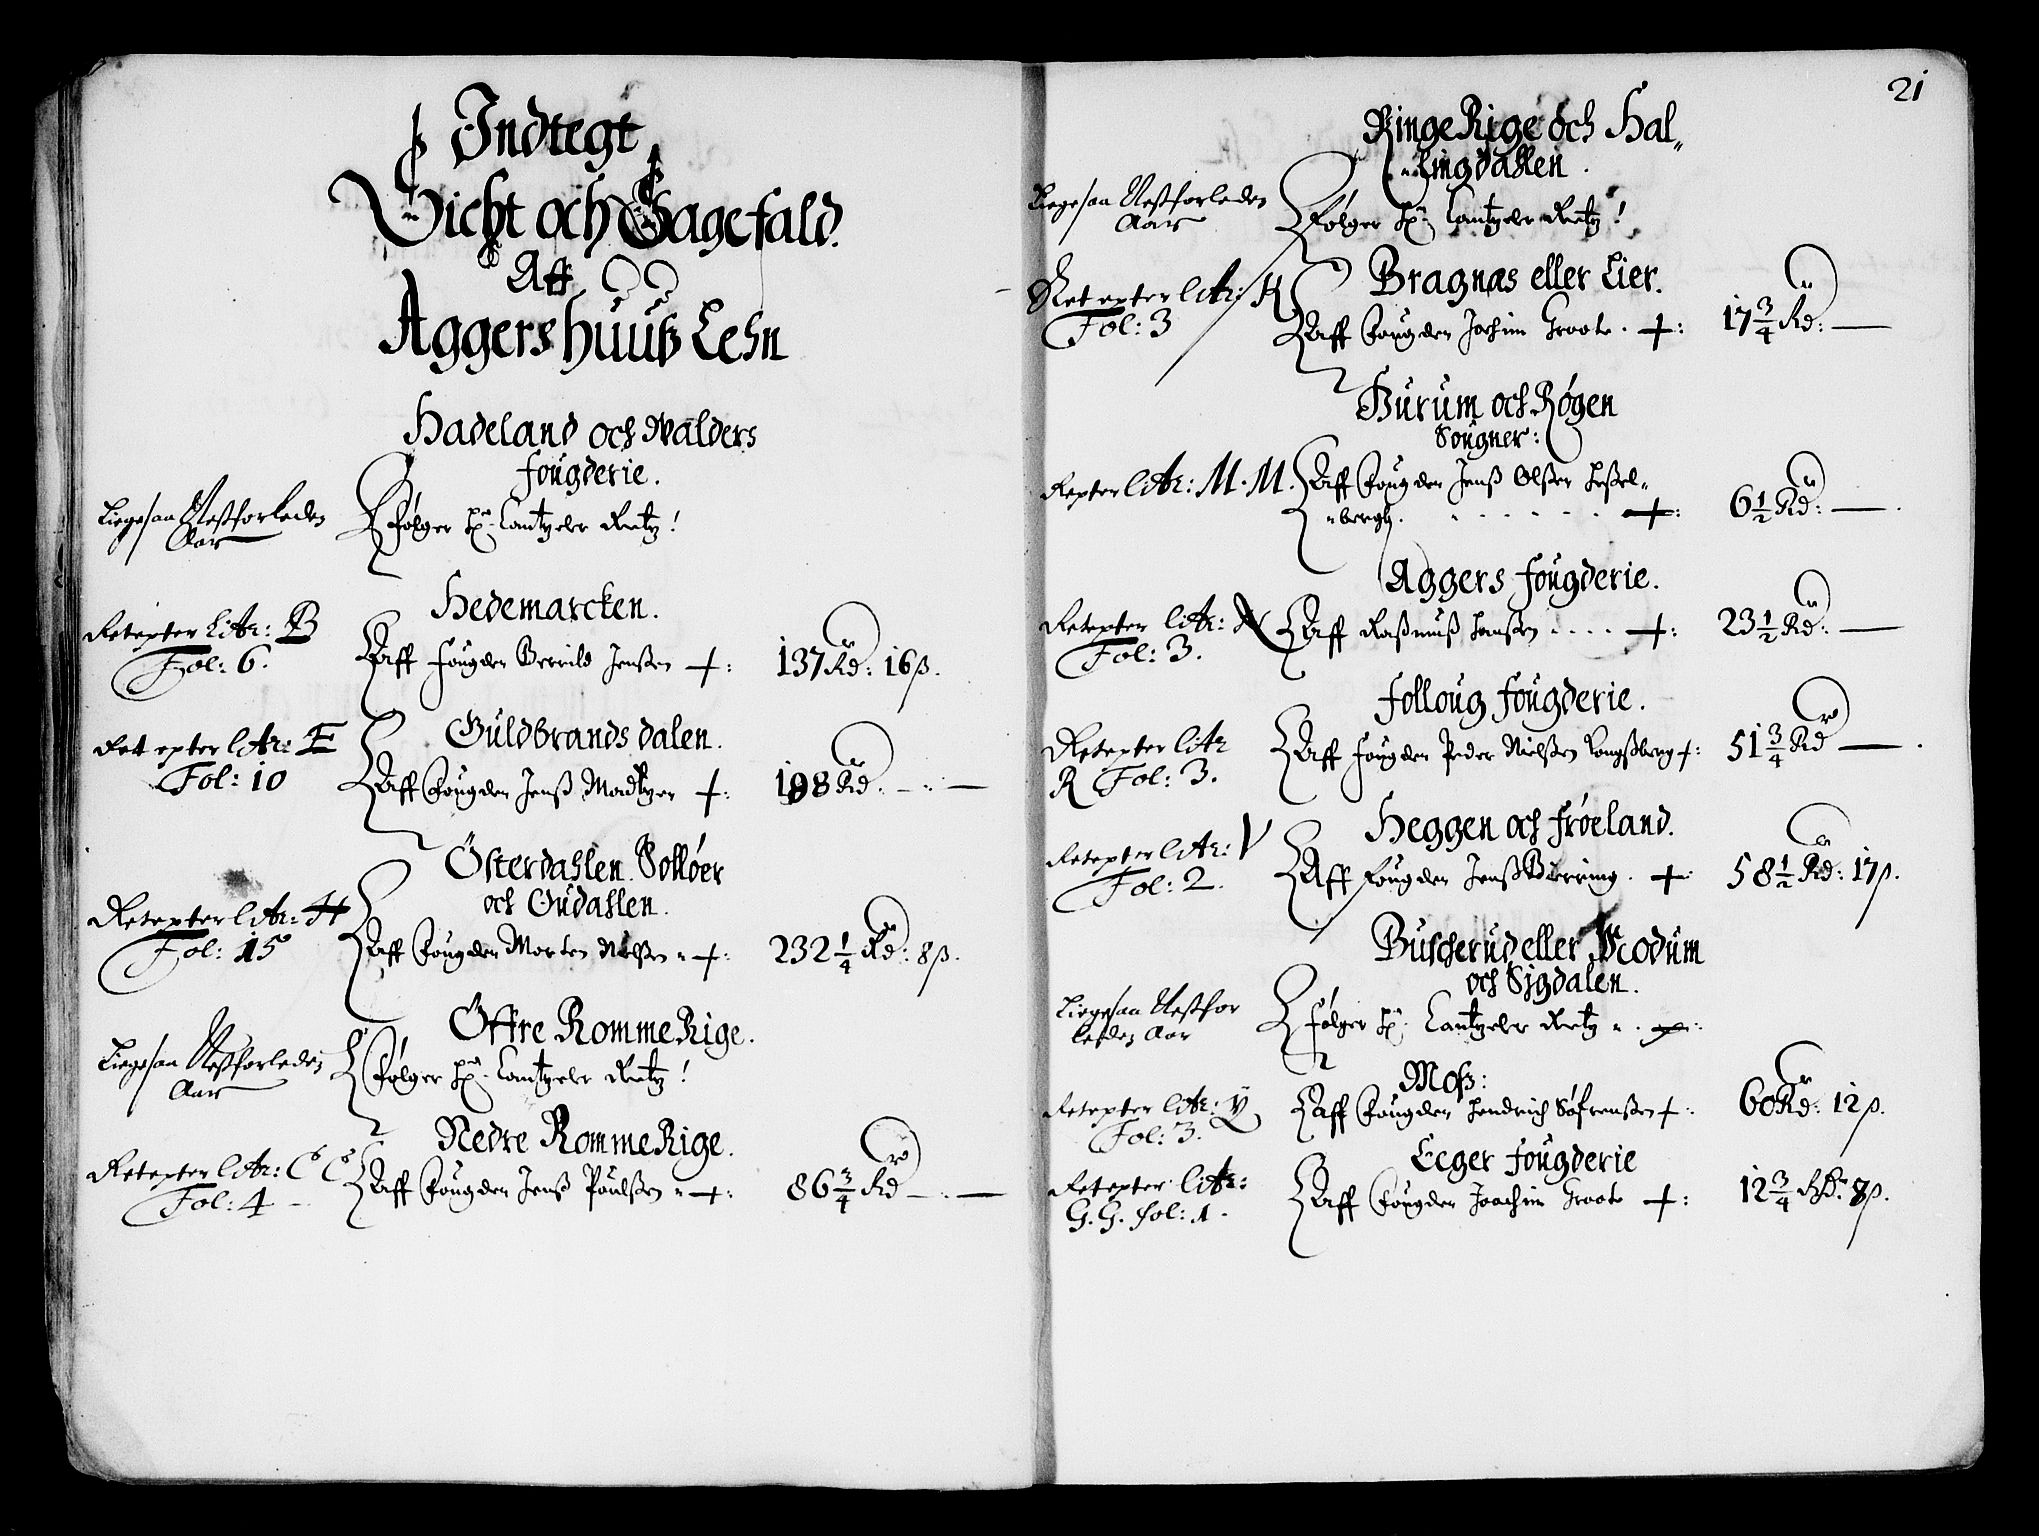 Indtegt
Sicht och Sagefald.
Aff
Aggershuuß Lehn
Hadeland och Walders
fougderie.
Ligesaa Nestforleden
Aar
Følger Hr. Cantzeler Rietz!
Hedemarcken.
Retepter Litr: B
Fol: 6.
Aff fougden Berrild Jenßen +:
137 Rd: 16 ß.
Guldbrandsdalen.
Ret epter litr: E
Fol: 10
Aff fougden Jenß Madtzen +:
198 Rd. — : —
Österdahlen. Solløer
och Oudahlen.
Retepter litr: H
Fol: 15
Aff fougden Morten Nielßen +:
232 1/4 Rd: 8 ß.
Offre RommeRige.
Ligesaa Nestforleden
Aar
Følger Hr. Cantzeler Rietz!
Nedre RommeRige.
Retepter litr: C C
Fol: 4 —
Aff fougden Jenß Poulßen +:
86 3/4 Rd — : —
21
RingeRige och Hal„
„lingdahlen.
Ligesaa Nestforleden
Aar
Følger Hr. Cantzeler Rietz!
Bragnæs eller Lier.
Retepter litr: K
Fol: 3
Aff fougden Jochim Groote. +:
17 3/4 Rd: —
Burum och Røgen
Sougner:
Repter litr: M. M.
Aff fougden Jenß Olßen Heßel„
„bergh. +:
6 1/2 Rd: —.
Aggers fougderie.
Retepter litr: N
Fol: 3.
Aff Raßmuß Hanßen .... +:
23 1/2 Rd: —
Folloug fougderie.
Retepter litr
R Fol: 3.
Aff fougden Peder Nielßen Kongßberg +:
51 3/4 Rd —.
Heggen och frøeland.
Retepter litr: V
Fol: 2.
Aff fougden Jenß Bierring. +:
58 1/2 Rd: 17 ß.
Buscherud eller Modum
och Sigdalen.
Ligesaa Nestfor
leden Aar
Følger Hr. Cantzeler Rietz
Moß:
Retepter litr: Y
Fol: 3.
Aff fougden Hendrich Søfrenßen +:
60 Rd: 12 ß.
Ecger fougderie
Retepter litr:
G. G. fol: 1.
Aff fougden Joachim Groote +:
12 3/4 Rd: 8 ß.